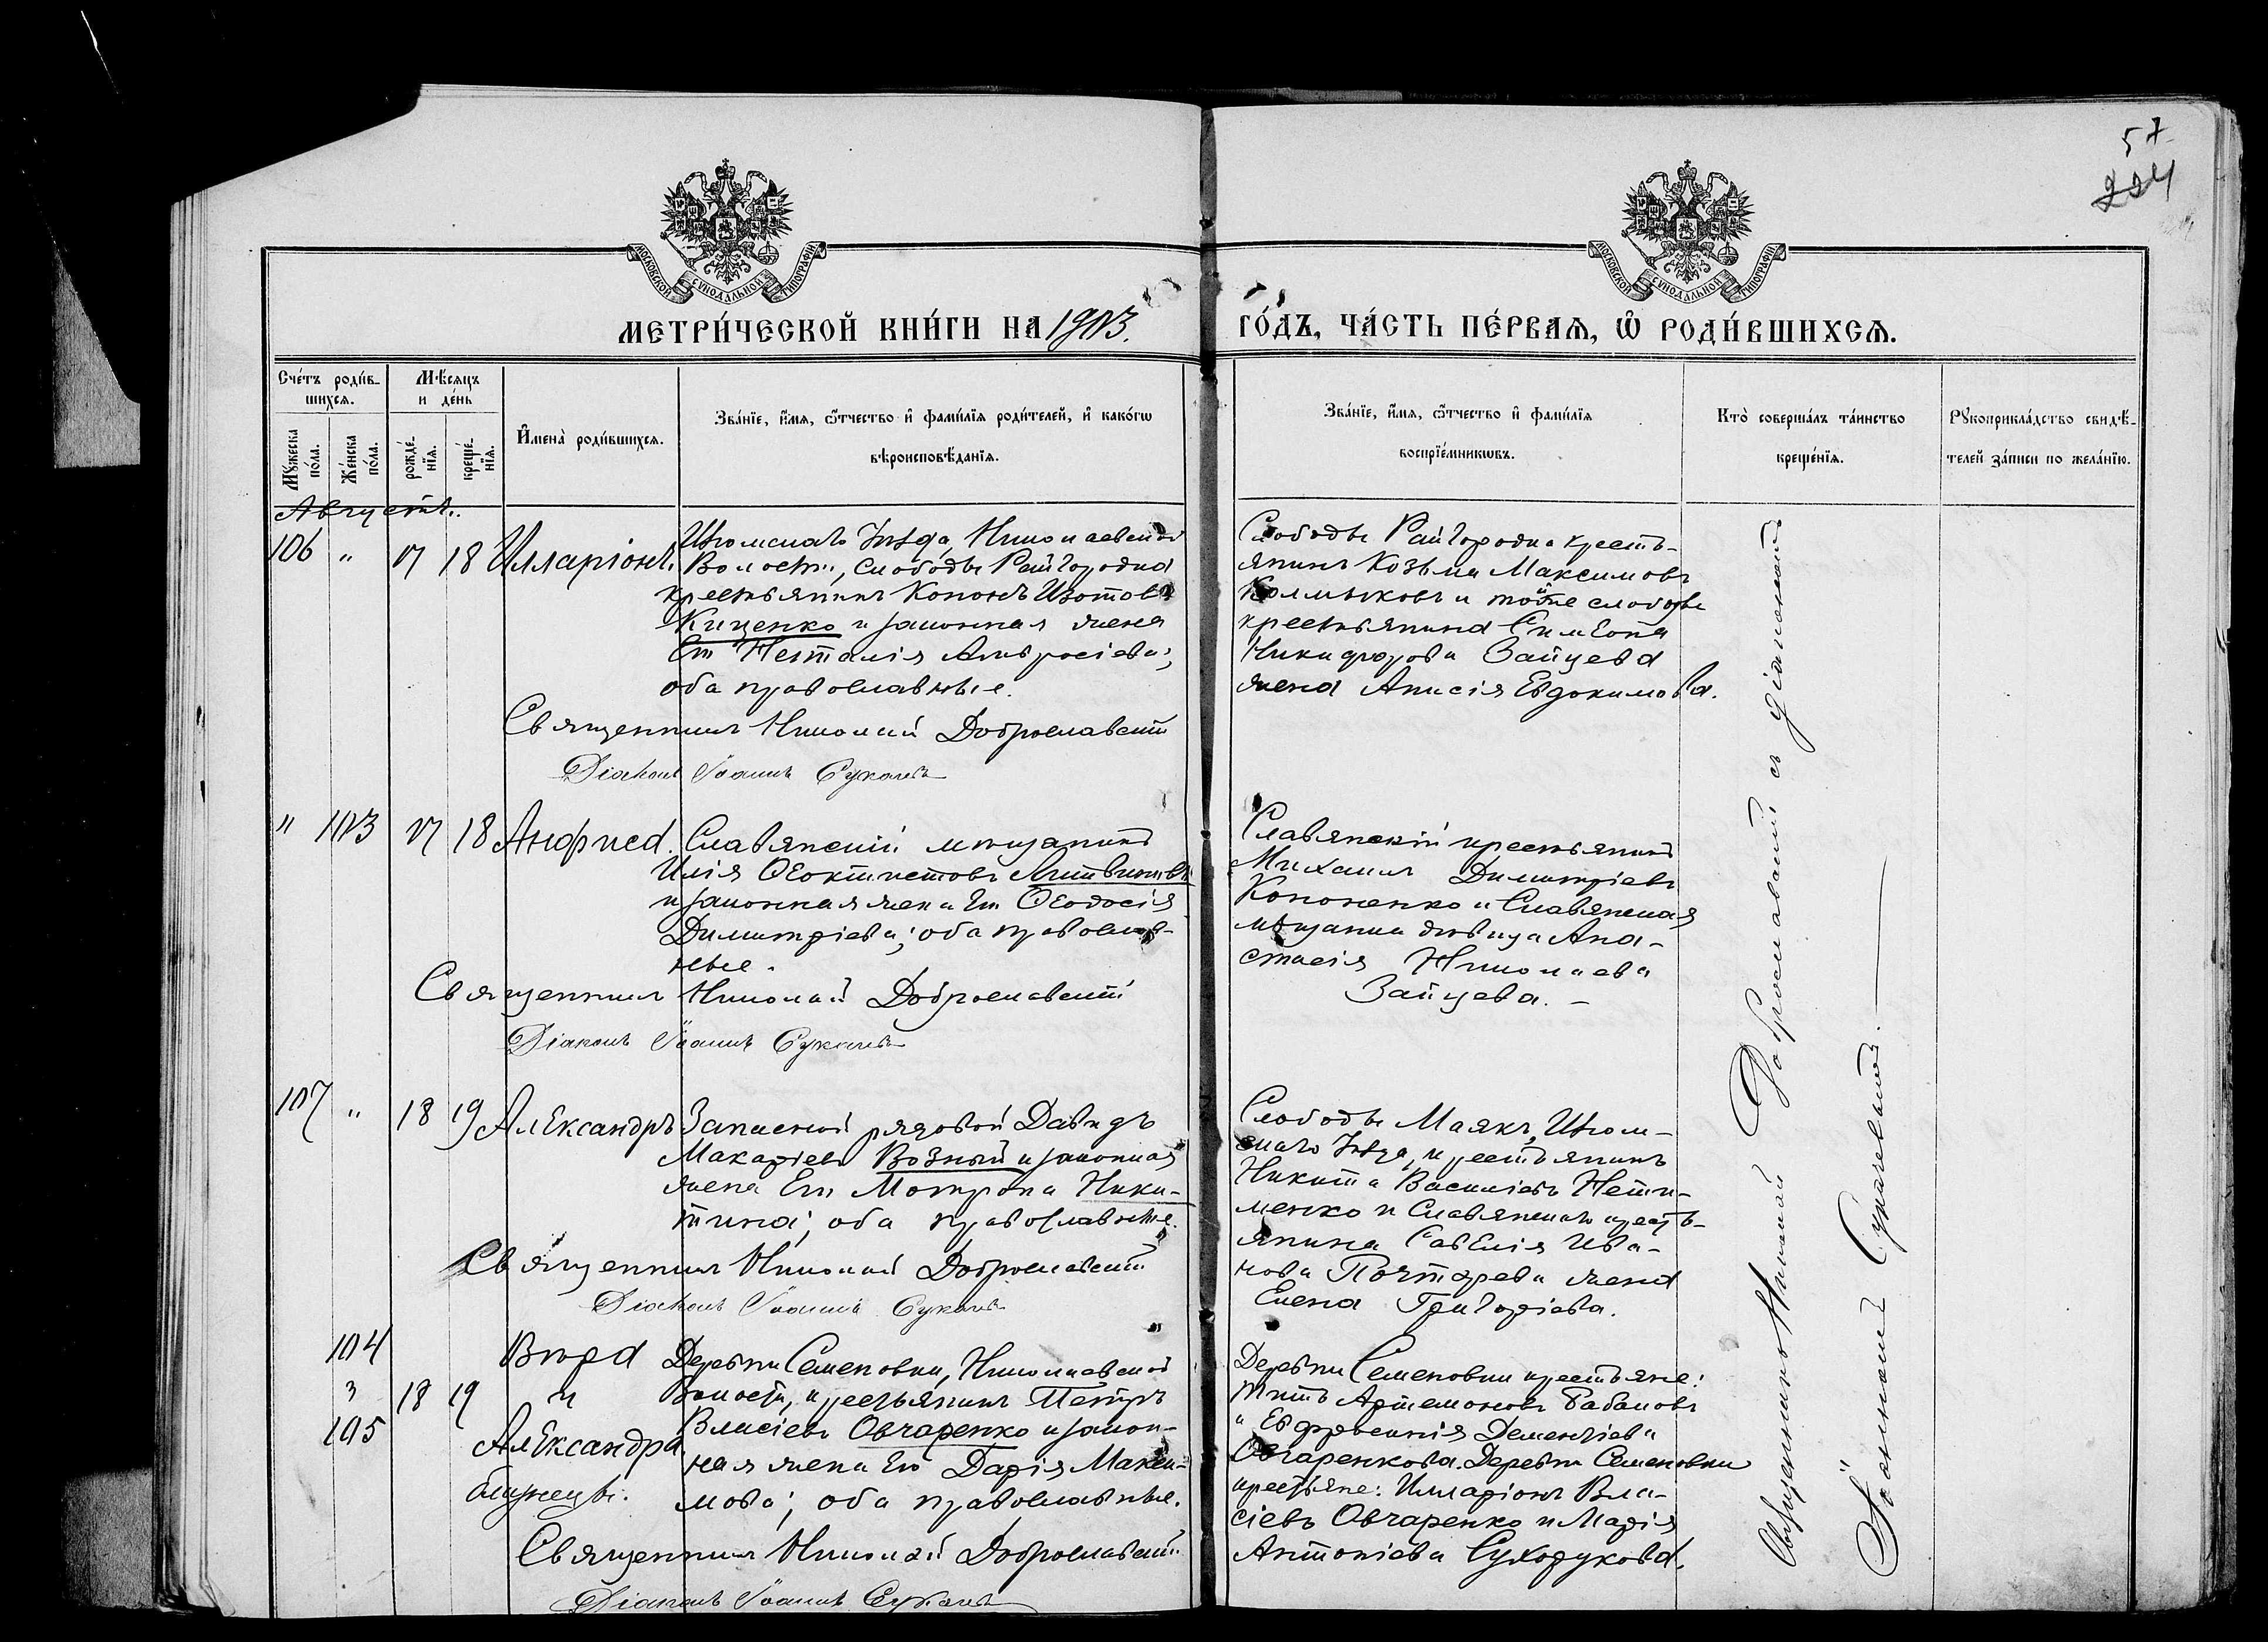 57
224
МОСКОВСКОЙ СѴНОДАЛЬНОЙ ТИПОГРАФІИ
МОСКОВСКОЙ СѴНОДАЛЬНОЙ ТИПОГРАФІИ
МЕТРИ́ЧЕСКОЙ КНИ́ГИ НА 1903.
ГО́ДЪ, ЧА́СТЬ ПЕ́РВАѦ, Ѡ҆ РОДИ́ВШИХСѦ.
Сче́тъ роди́в-
шихсѧ.
Мꙋ́жеска
по́ла.
Же́нска
по́ла.
Мѣ́сѧцъ
и де́нь
рожде́-
нїѧ.
креще́-
нїѧ.
И҆мена̀ роди́вшихсѧ.
Зва́нїе, и҆́мѧ, ѻ҆́тчество и҆ фами́лїѧ роди́телей, и҆ како́гѡ
вѣроисповѣ́данїѧ.
Зва́нїе, и҆́мѧ, ѻ҆́тчество и҆ фами́лїѧ
воспрїе́мникѡвъ.
Кто̀ соверша́лъ та́инство
креще́нїѧ.
Рꙋкоприкла́дство свидѣ́-
телей за́писи по жела́нїю.
Августъ.
106 " 17 18 Илларіонъ.
Изюмскаго Уѣзда, Николаевской
Волости, слободы Райгородка
крестьянинъ Кононъ Изотовъ
Киценко и законная жена
Его Наталія Амвросіева;
оба православные.
Священникъ Николай Доброславскій
Діаконъ Іоаннъ Сукачевъ
Слободы Райгородка кресть-
янинъ Козьма Максимовъ
Колмыковъ и той же слободы
крестьянина Симеона
Никифорова Зайцева
жена Анисія Евдокимова.
" 103 17 18 Анфиса.
Славянскій мѣщанинъ
Илія Ѳеоктистовъ Литвиновъ
и законная жена Его Ѳеодосія
Димитріева; оба православ-
ные.
Священникъ Николай Доброславскій
Діаконъ Іоаннъ Сукачевъ
Славянскій крестьянинъ
Михаилъ Димитріевъ
Кононенко и Славянская
мѣщанка дѣвица Ана-
стасія Николаева
Зайцева. –
107 " 18 19 Александръ
Запасной рядовой Давидъ
Макаріевъ Возный и законная
жена Его Мотрона Ники-
тина; оба православные.
Священникъ Николай Доброславскій
Діаконъ Іоаннъ Сукачевъ
Слободы Маякъ, Изюм-
скаго Уѣзда, крестьянинъ
Никита Василіевъ
и Славянскаго кресть-
янина Савелія Ива-
нова Почтарева жена
Елена Григоріева.
104
и
105
18 19
Вѣра
и
Александра
близнецы.
Деревни Семеновки, Николаевской
Волости, крестьянинъ Петръ
Власіевъ Овчаренко и закон-
ная жена Его Дарія Макси-
мова; оба православные.
Священникъ Николай Доброславскій
Діаконъ Іоаннъ Сукачевъ
Деревни Семеновки крестьяне:
Титъ Артемоновъ Бабановъ
и Евфросинія Дементіева
Овчаренкова. Деревни Семеновки
крестьяне: Илларіонъ Вла-
сіевъ Овчаренко и Марія
Антоніева Сухорукова.
Священникъ Николай Доброславскій съ діакономъ
Іоанномъ Сукачевымъ.